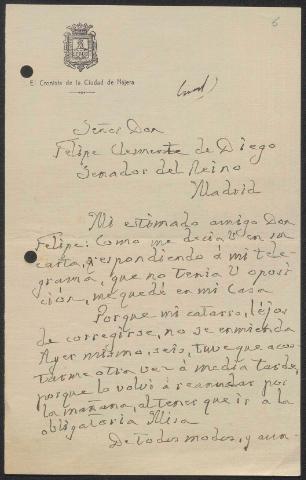 6
El Cronista de la Ciudad de Nájera
Señor Don
Felipe Clemente de Diego
Senador del Reino
Madrid
Mi estimado amigo Don
Felipe: Como me decia V. en su
carta, respondiendo á mi tele-
grama, que no tenia V oposi-
cion, me quedé en mi Casa
Porque mi catarro, lejos
de corregirse, no se enmienda
Ayer mismo, seis, tuve que acos-
tarme otra vez á media tarde,
porque lo volví á reanudar por
la mañana, al tener que ir a la
obligatoria Misa
De todos modos, y aun-